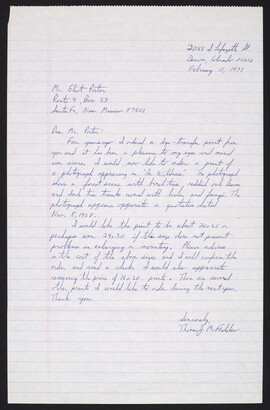 2055 S Lafayette St
Denver, Colorado 80210
February 11, 1971
Mr. Eliot Porter
Route 4, Box 33
Santa Fe, New Mexico 87501
Dear Mr. Porter:
Four years ago I ordered a dye transfer print from
you and it has been a pleasure to my eyes and mind
ever since. I would now like to order a print of
a photograph appearing in "In Wildness." The photograph
shows a forest scene with tree
and dark tree trunks covered with lichen, and fungi. The
photograph appears opposite a quotation dated
Nov. 8, 1858.
I would like the print to be about 20x25 or
perhaps even 24x30 if this size does not present
problems in enlarging or mounting. Please advise
me the cost of the above sizes and I will confirm the
order and send a check. I would also appreciate
receiving the price of 16x20 prints. There are several
other prints I would like to order during the next year.
Thank you.
Sincerely
Thomas